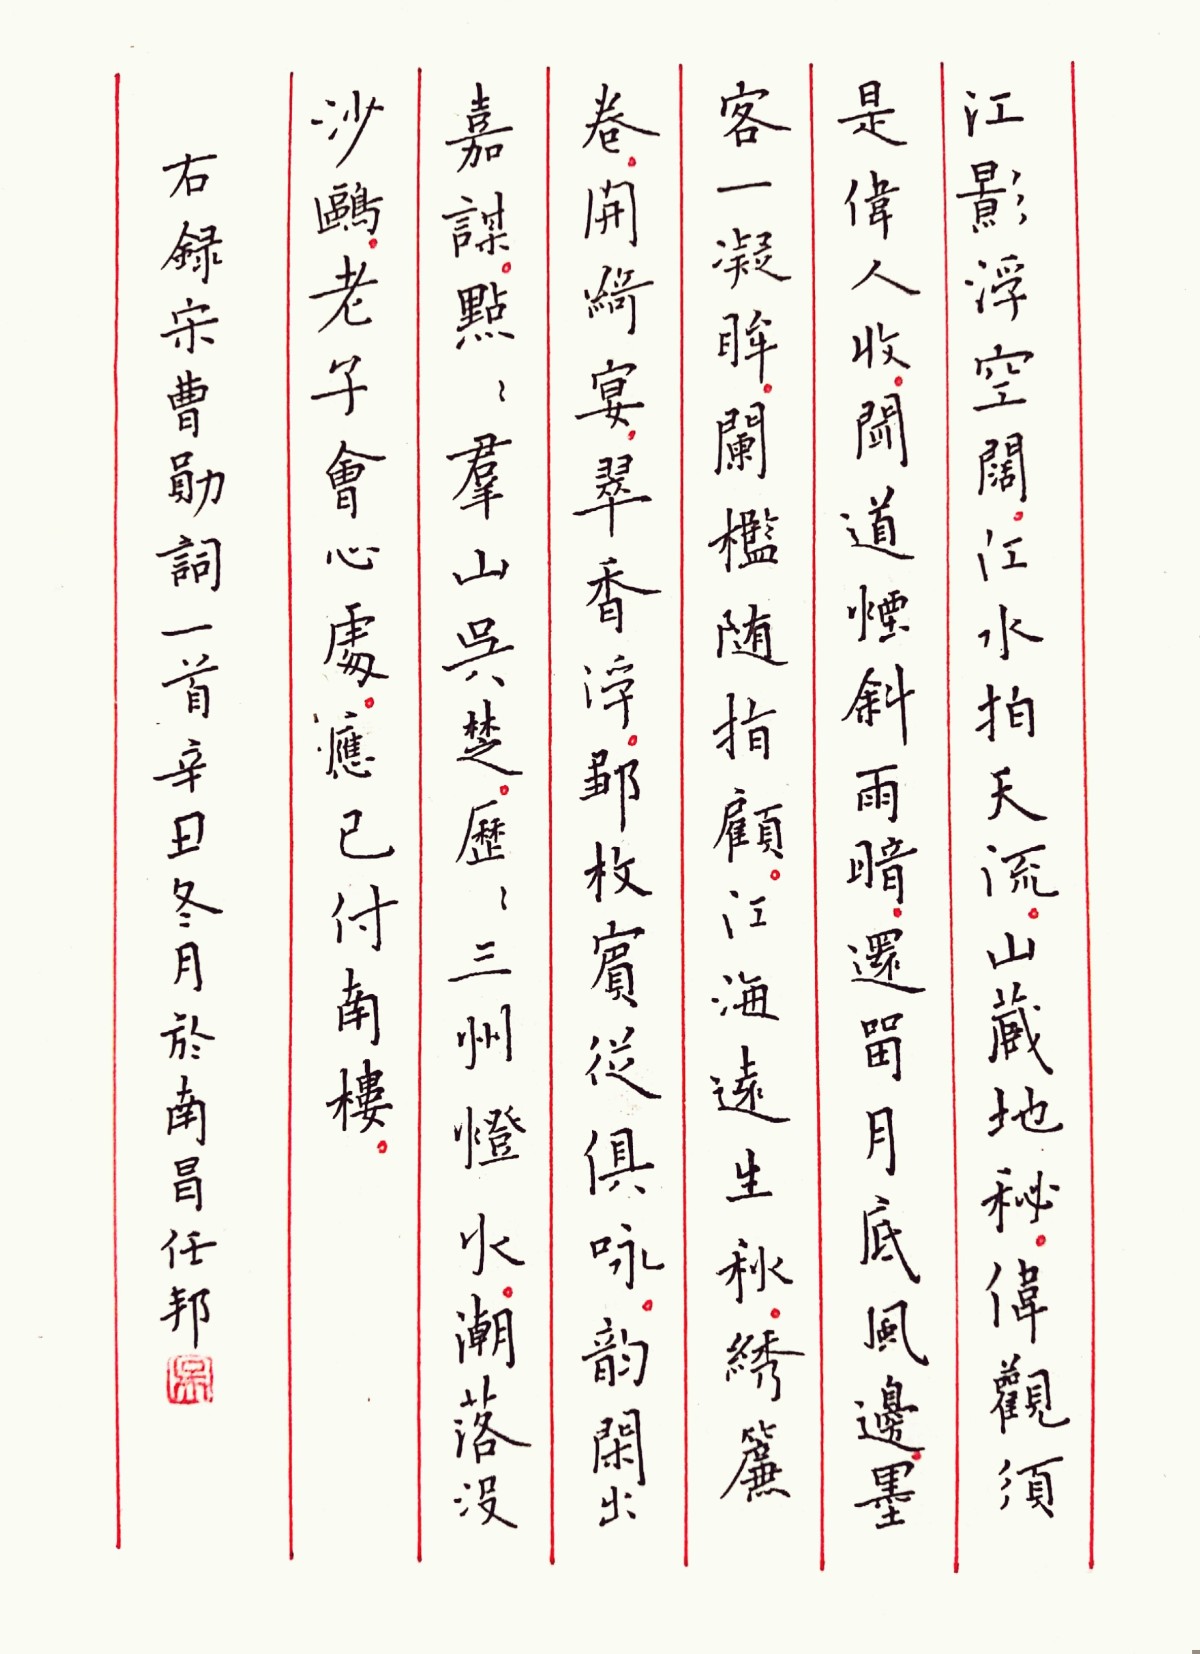 江影浮空闊。江水拍天流。山藏地秘。偉觀須
是偉人收。聞道煙斜雨暗。還留月底風邊。墨
客一凝眸。闌檻随指顧。江海遠生秋。綉簾
卷。開綺宴。翠香浮。鄒枚賓從俱咏。韵閑出
嘉謀。點〻羣山吳楚。歷〻三州燈火。潮落没
沙鷗。老子會心處。應已付南樓。
右録宋曹勛詞一首辛丑冬月於南昌任邦